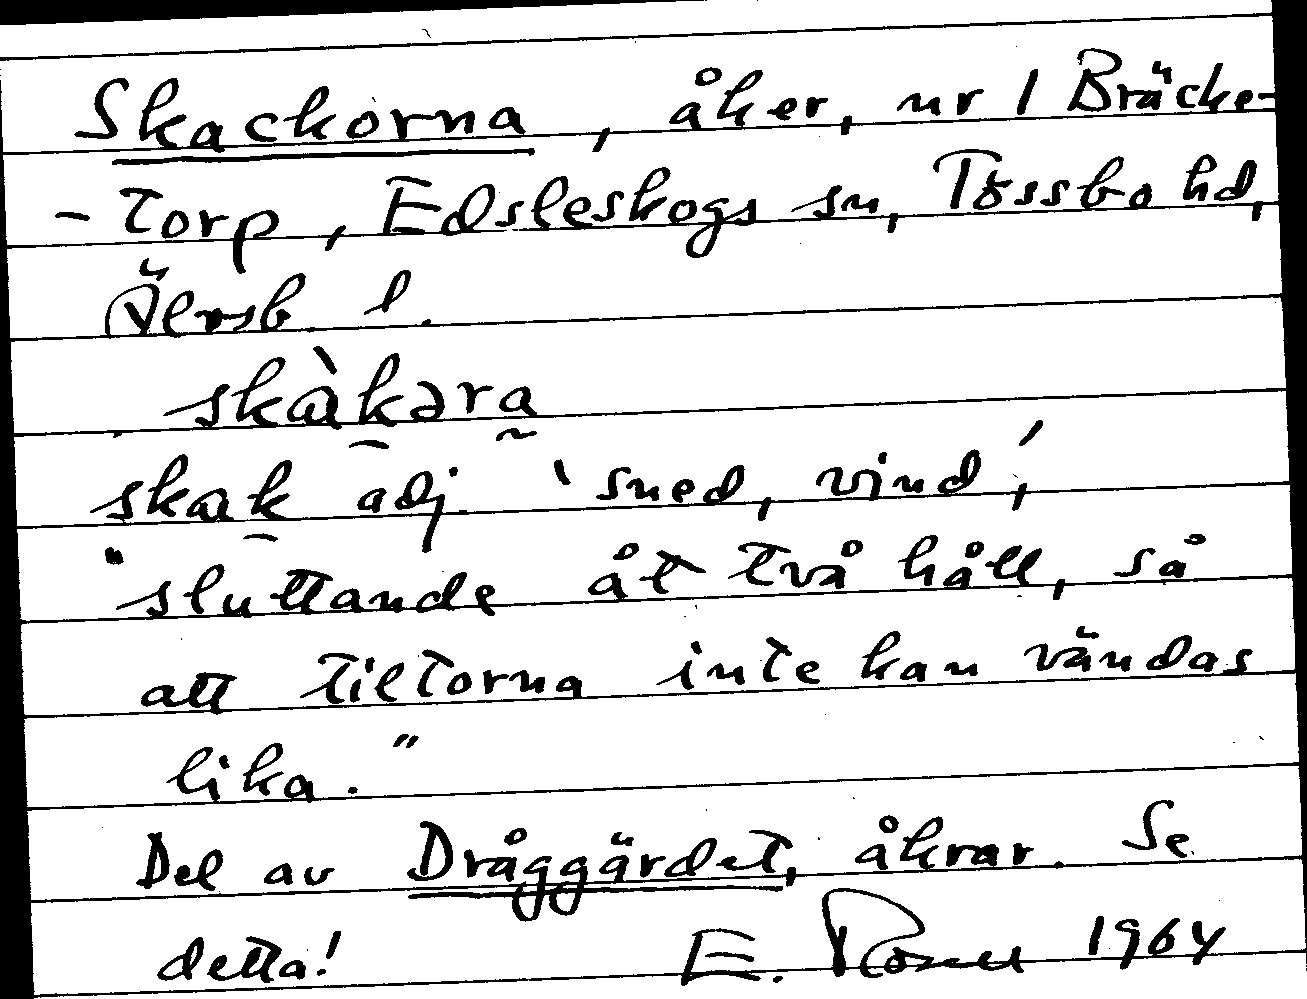 Skackorna, åker, nr 1 Bräcke-
- torp, Edsleskogs sn, Tössbo hd,
Älvsb. l.
skàkəra
skak adj. 'sned, vind',
"sluttande åt två håll, så
att tiltorna inte kan vändas
lika."
Del av Dråggärdet, åkrar. Se
detta! E. Rosell 1964